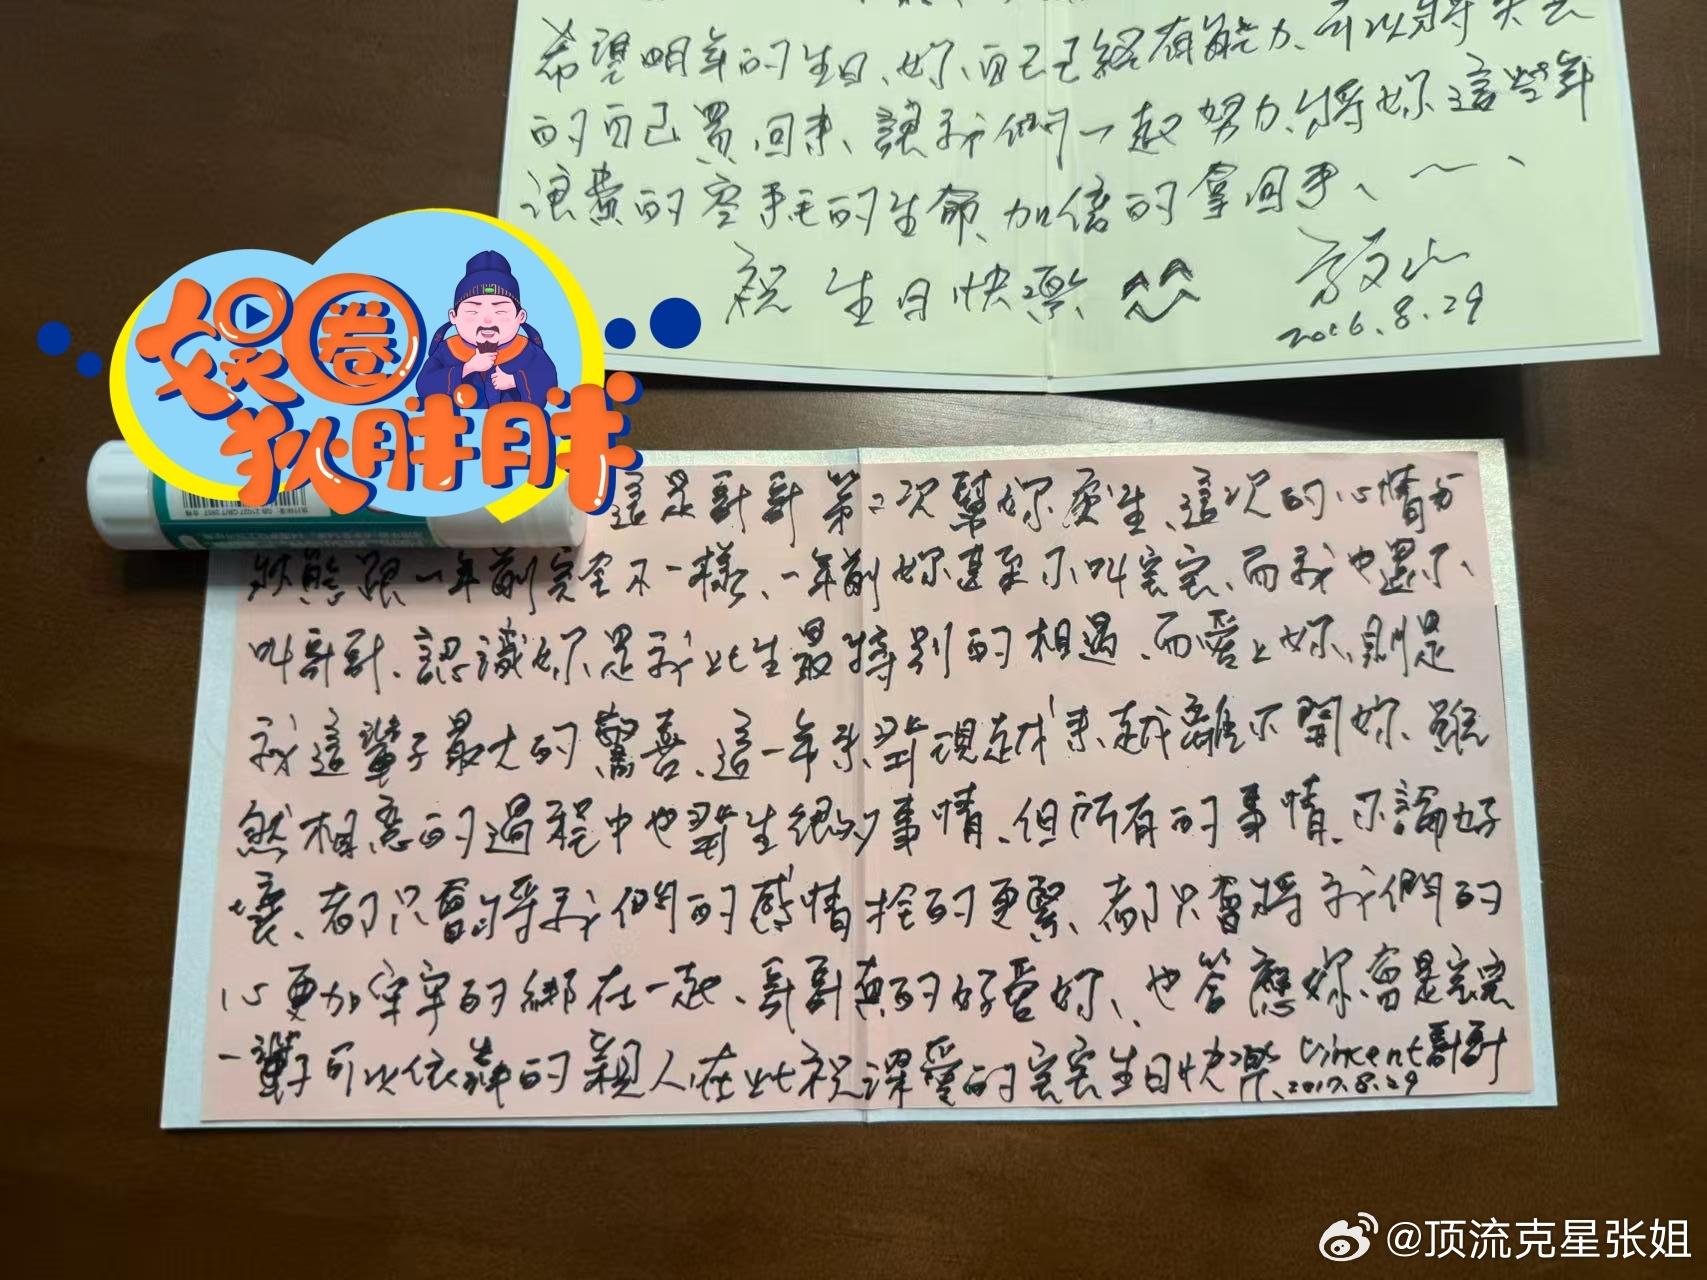 希望明年的生日、妳、自己已經有能力、可以將失去
的自己買回來、讓我們一起努力、將妳這些年
浪費的空乏的生命、加倍的拿回來、～、
祝 生日快樂 ^^
2016.8.29
娱圈
狄胖胖
這是哥哥第二次幫妳慶生、這次的心情与
狀態跟一年前完全不一樣、一年前妳甚至不叫宝宝、而我也還不
叫哥哥、認識妳是我此生最特別的相遇、而愛上妳、則是
我這輩子最大的驚喜、這一年来發現越来越離不開妳、雖
然相戀的過程中也發生很多事情、但所有的事情、不論好
壞、都只會將我們的感情拴的更緊、都只會將我們的
心更加牢牢的綁在一起、哥哥真的好愛妳、也答應妳會是宝宝
一輩子可以依靠的親人、在此祝深愛的宝宝生日快樂、Vincent哥哥
2017.8.29
@顶流克星张姐